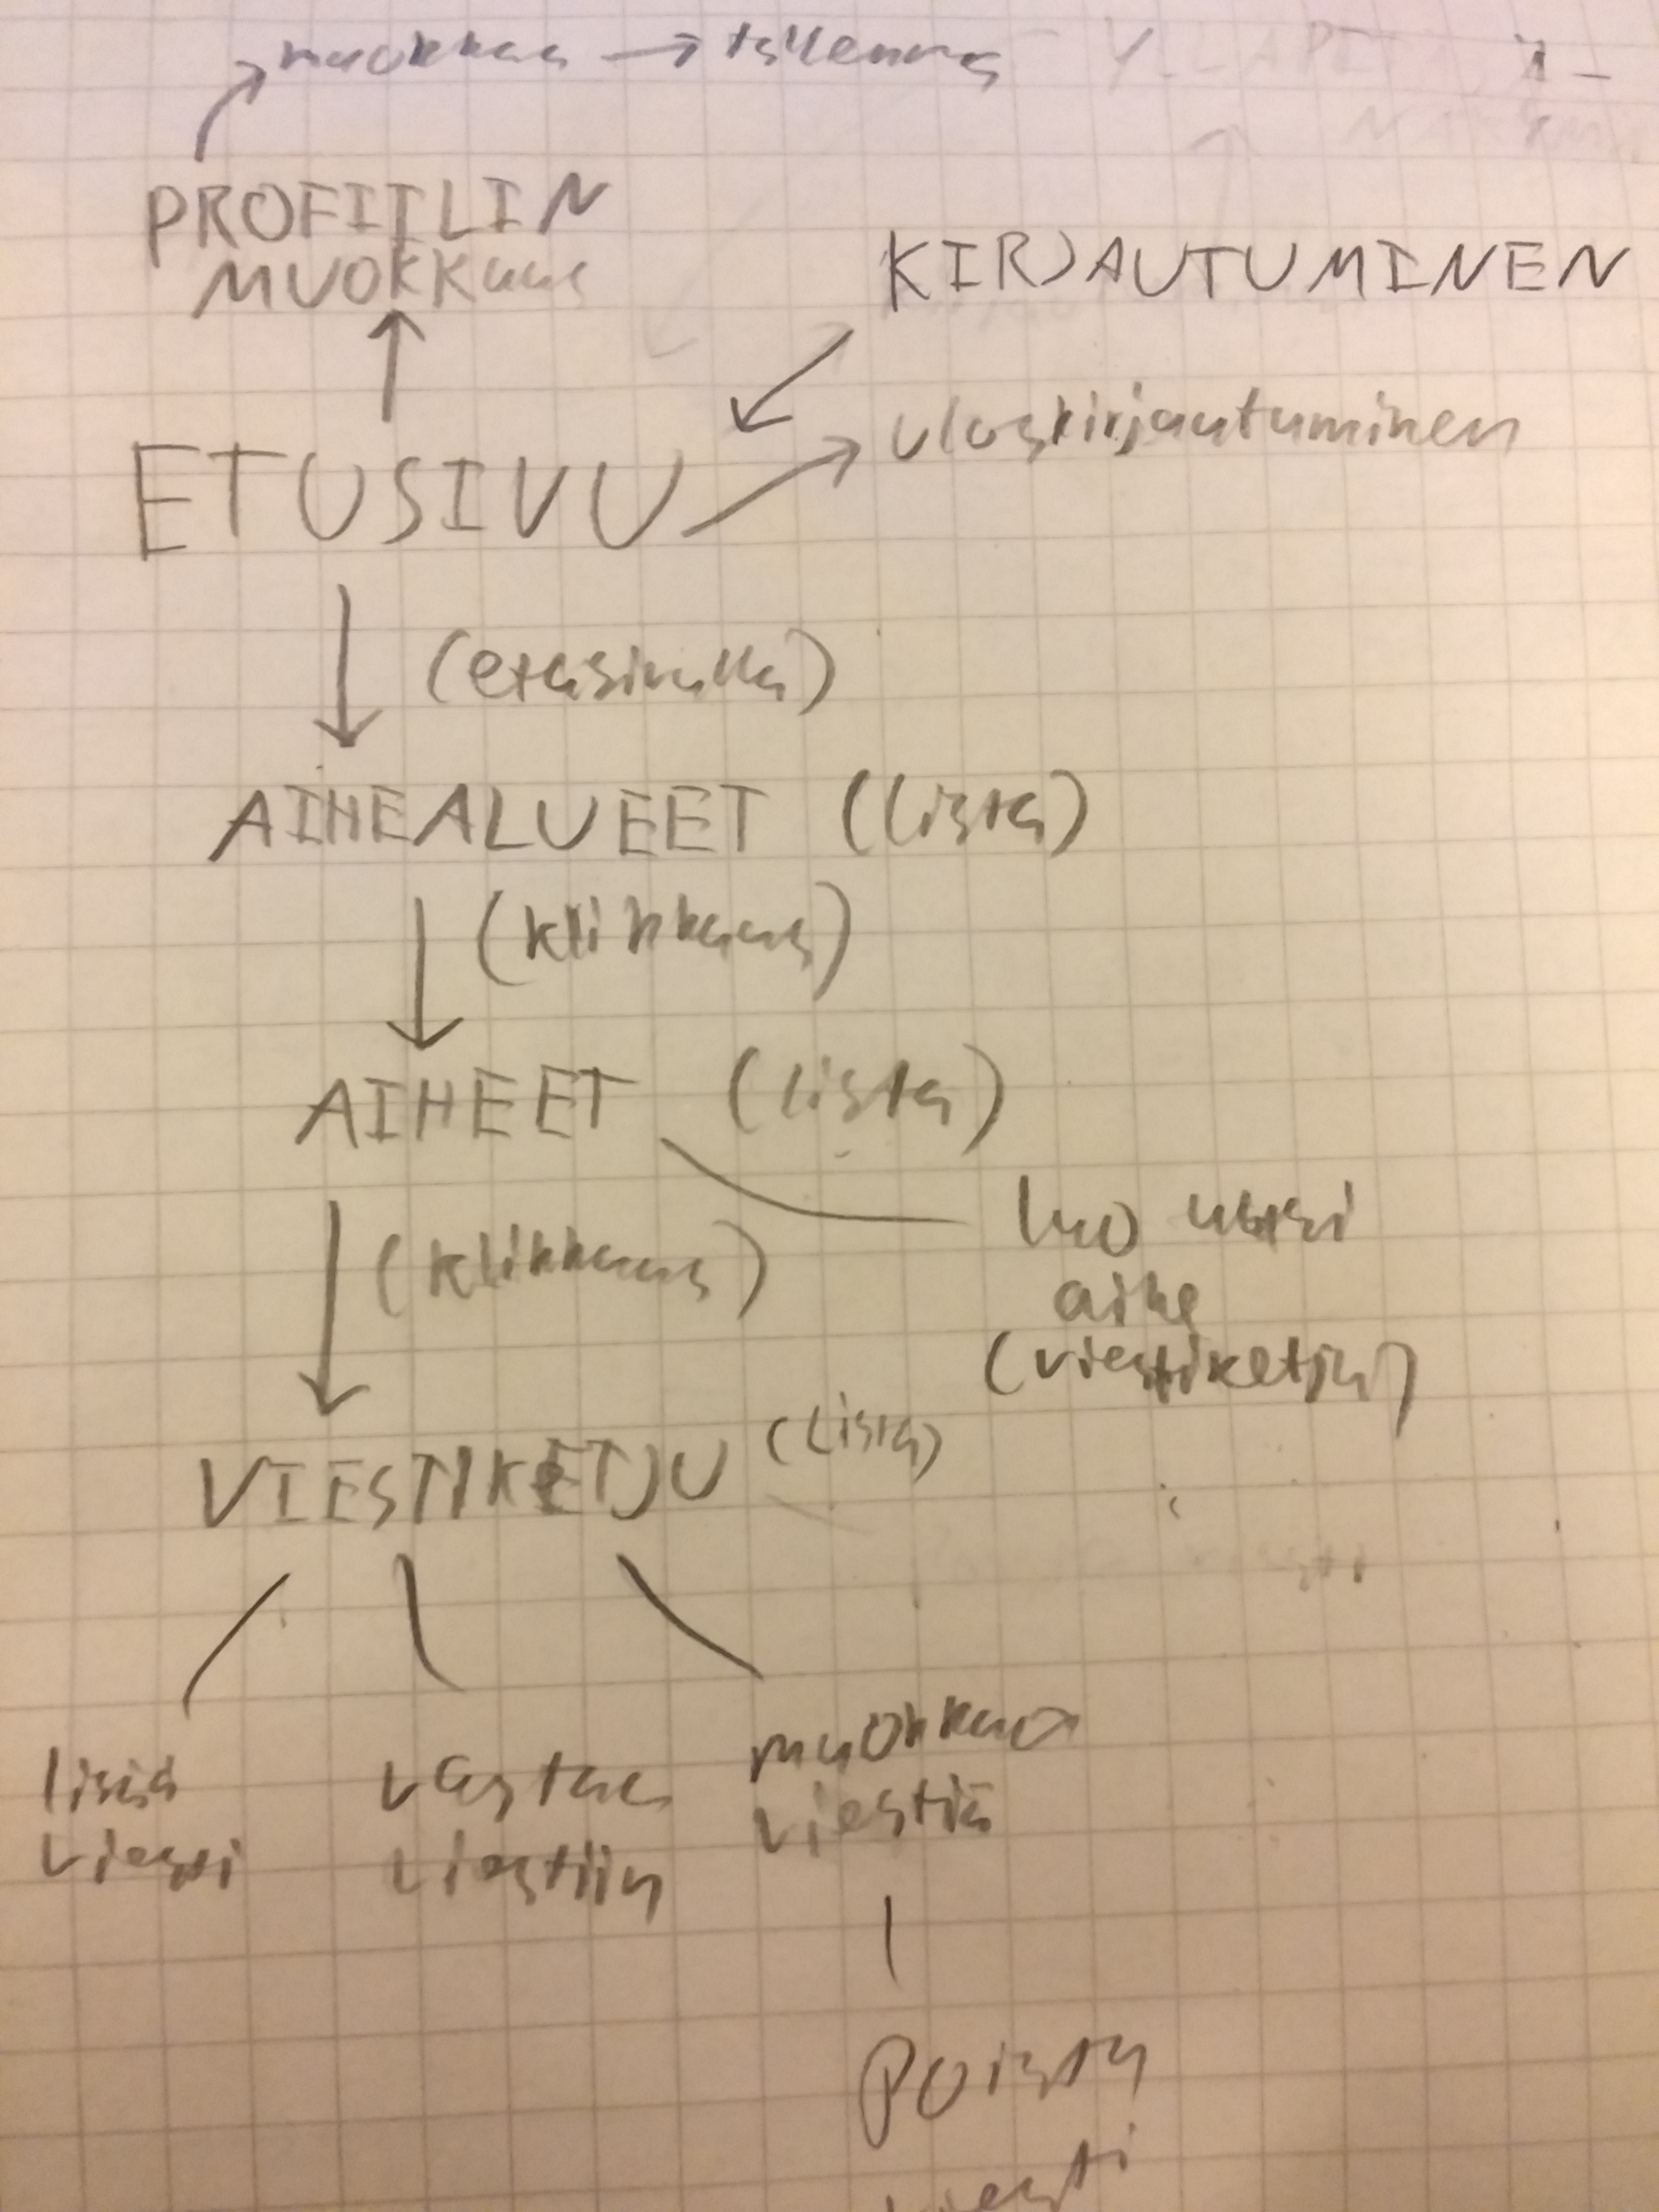 muokkaa → tallennus
PROFIILIN
MUOKKaus
KIRJAUTUMINEN
uloskirjautuminen
ETUSIVU
(etusivulla)
AIHEALUEET (lista)
(klikkaus)
AIHEET (lista)
luo uusi
aihe
(viestiketju)
(klikkaus)
VIESTIKETJU (lista)
lisää
viesti
vastaa
viestiin
muokkaa
viestiä
poista
viesti